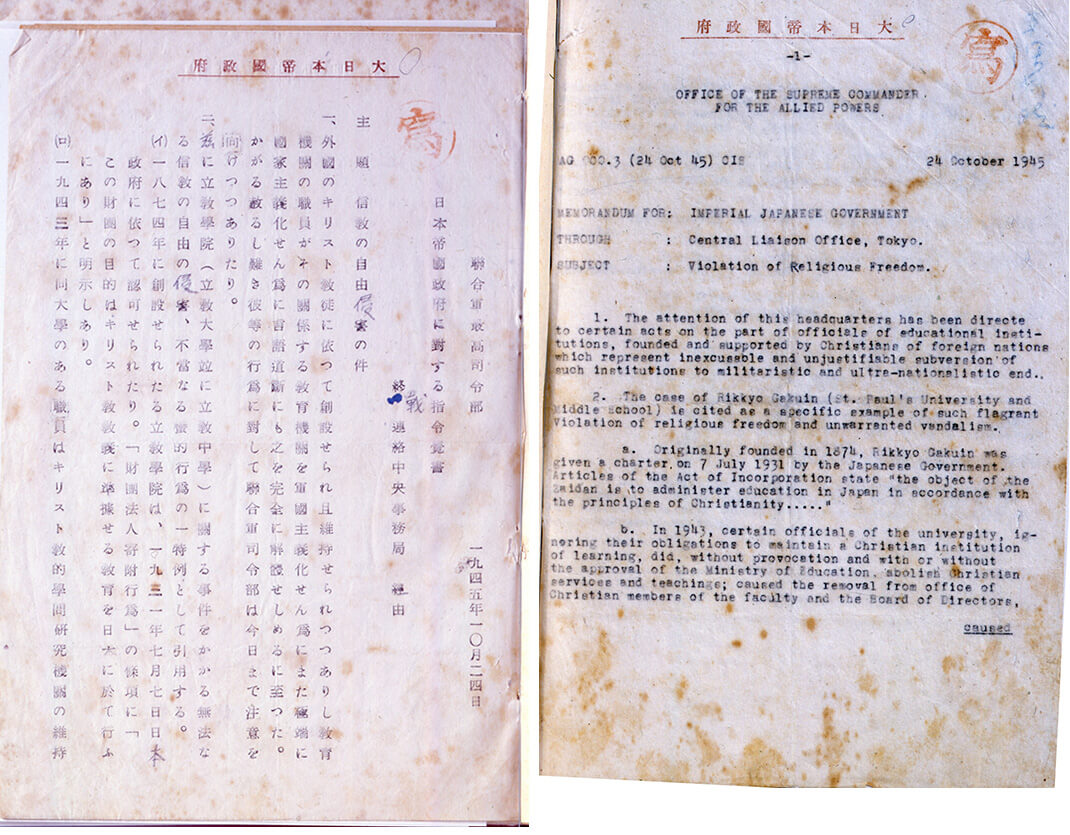 大日本帝國政府
寫
聯合軍最高司令部 一九四五年一〇月二四日
日本帝國政府に對する指令覺書
終戰連絡中央事務局 經由
主題 信敎の自由侵害の件
一、外國のキリスト敎徒に依つて創設せられ且維持せられつつありし敎育
機關の職員がその關係する敎育機關を軍國主義化せん爲にまた極端に
國家主義化せん爲に言語道斷にも之を完全に解體せしめるに至つた。
かがる赦るし難き彼等の行爲に對して聯合軍司令部は今日まで注意を
向けつつありたり。
二、玆に立敎學院（立敎大學竝に立敎中學）に關する事件をかかる無法な
る信敎の自由の侵害、不當なる蠻的行爲の一特例として引用する。
(イ)一八七四年に創設せられたる立敎學院は、一九三一年七月七日日本
政府に依つて認可せられたり。「財團法人寄附行爲」の條項に「
この財團の目的はキリスト敎敎義に準據せる敎育を日本に於て行ふ
にあり」と明示しあり。
(ロ)一九四三年に同大學のある職員はキリスト敎的學問研究機關の維持
大日本帝國政府
寫
-1-
OFFICE OF THE SUPREME COMMANDER
FOR THE ALLIED POWERS
AG 000.3 (24 Oct 45) CIS 24 October 1945
MEMORANDUM FOR: IMPERIAL JAPANESE GOVERNMENT
THROUGH : Central Liaison Office, Tokyo.
SUBJECT : Violation of Religious Freedom.
1. The attention of this headquarters has been directe
to certain acts on the part of officials of educational insti-
tutions, founded and supported by Christians of foreign nations
which represent inexcusable and unjustifiable subversion of
such institutions to militaristic and ultra-nationalistic end..
2. The case of Rikkyo Gakuin (St. Paul's University and
Middle School) is cited as a specific example of such flagrant
violation of religious freedom and unwarranted vandalism.
a. Originally founded in 1874, Rikkyo Gakuin was
given a charter on 7 July 1931 by the Japanese Government.
Articles of the Act of Incorporation state "the object of the
Zaidan is to administer education in Japan in accordance with
the principles of Christianity....."
b. In 1943, certain officials of the university, ig-
noring their obligations to maintain a Christian institution
of learning, did, without provocation and with or without
the approval of the Ministry of Education, abolish Christian
services and teachings; caused the removal from office of
Christian members of the faculty and the Board of Directors,
caused